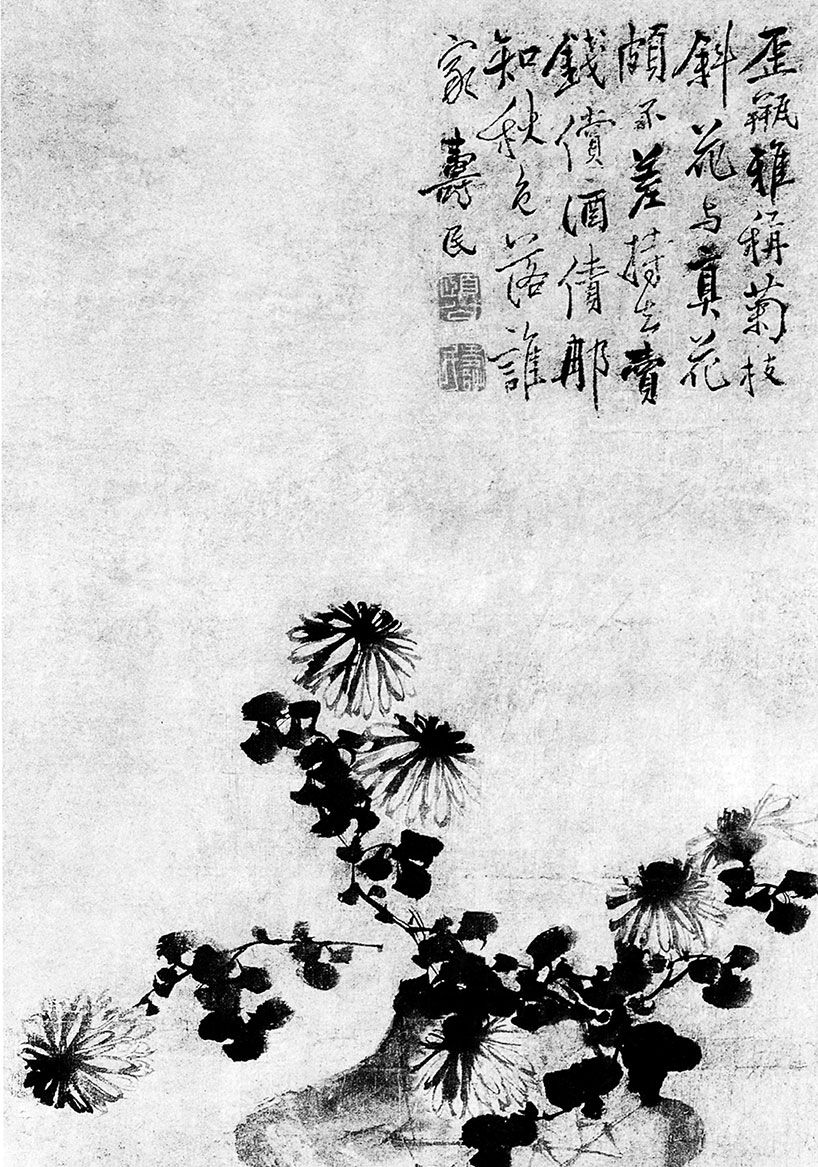 歪瓶雅稱菊枝
斜花与真花
頗不差持去賣
錢償酒債那
知秋色落誰
家 壽民